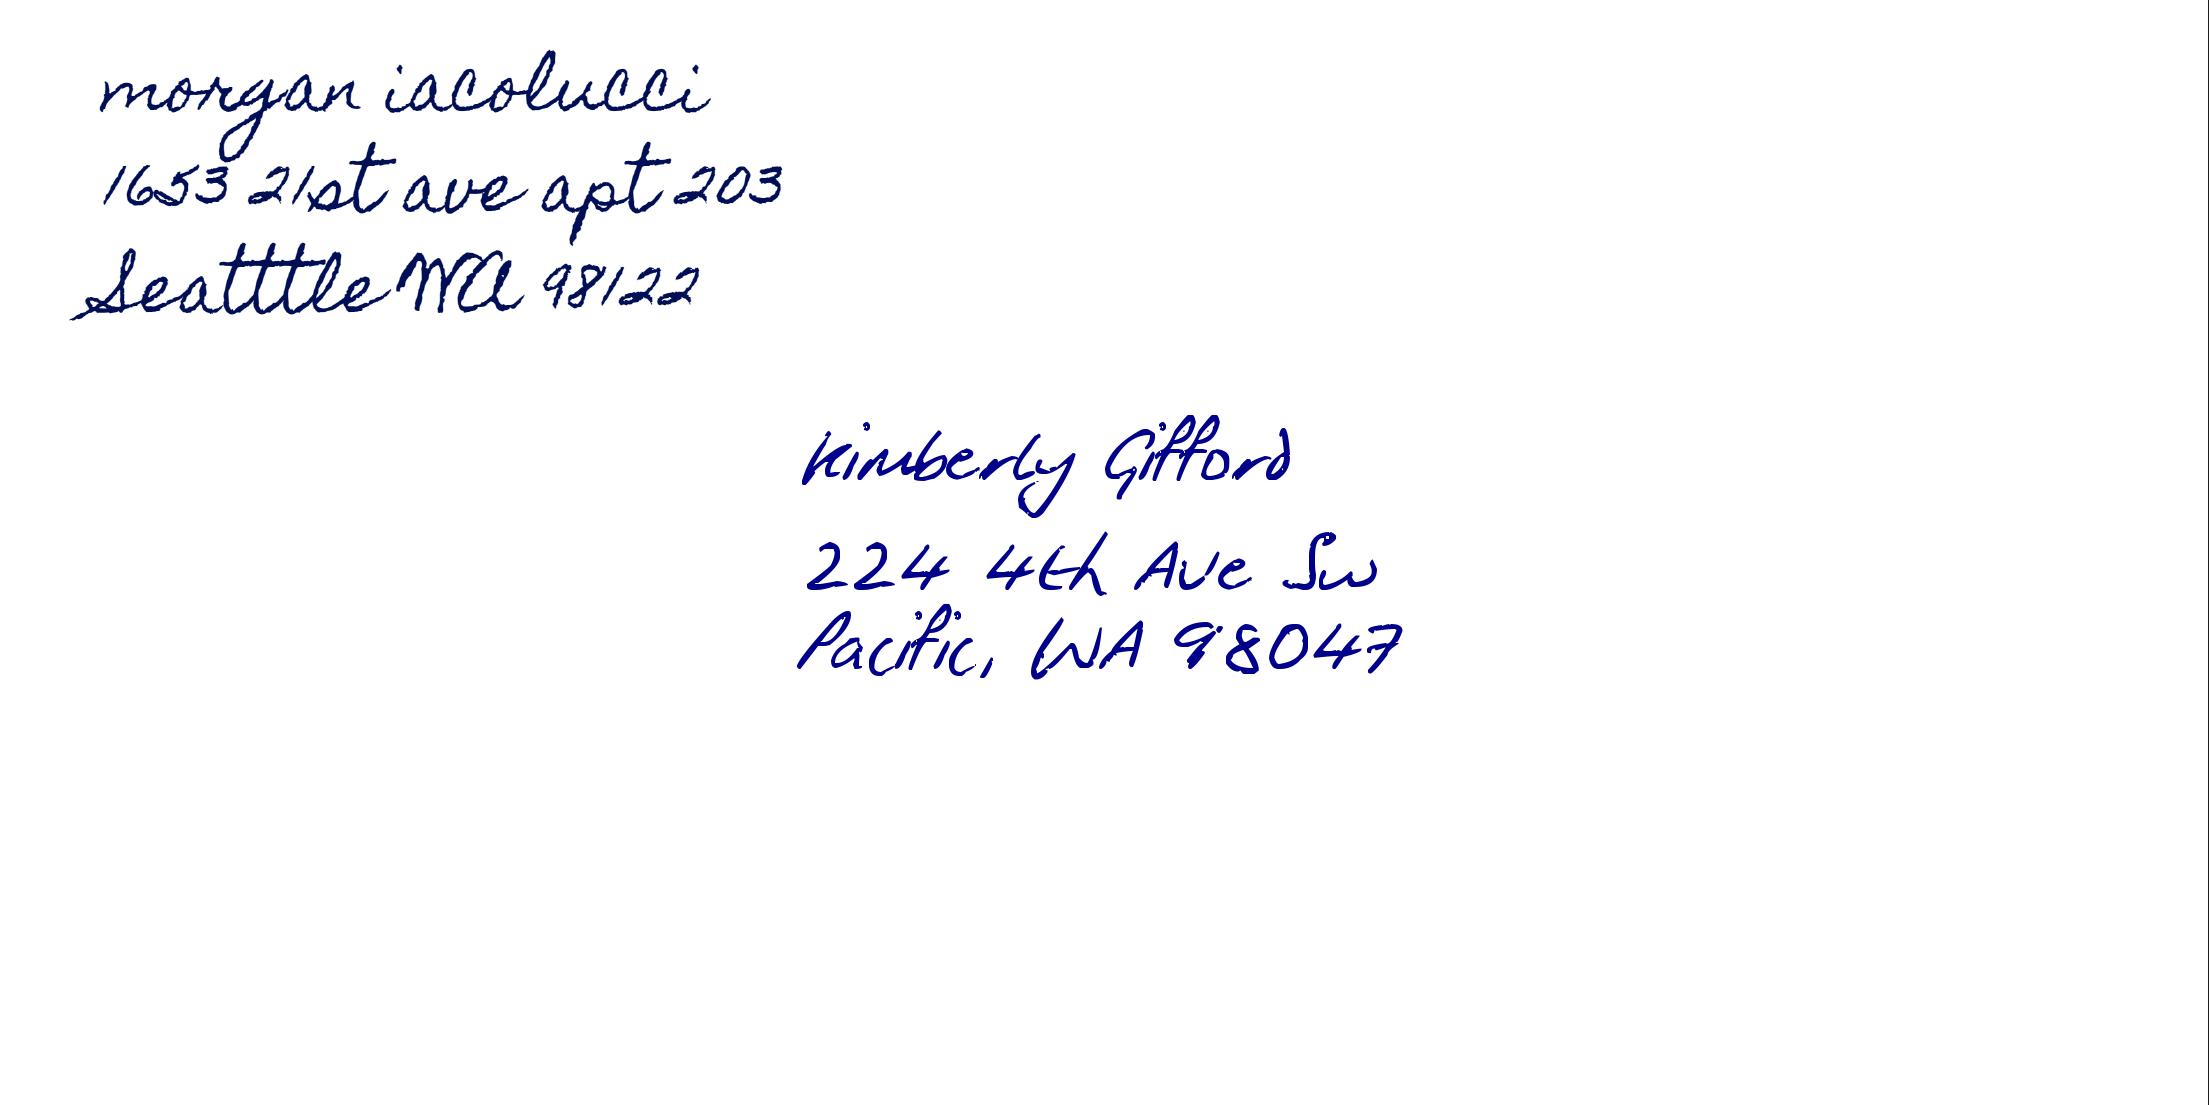 morgan iacolucci
1653 21st ave apt 203
Seatttle WA 98122
Kimberly Gifford
224 4th Ave Sw
Pacific, WA 98047